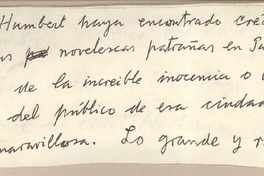 Humbert haya encontrado cré
novelescas patrañas en Pa
de la increible inocencia o
del público de esa ciudad
maravillosa. Lo grande y r